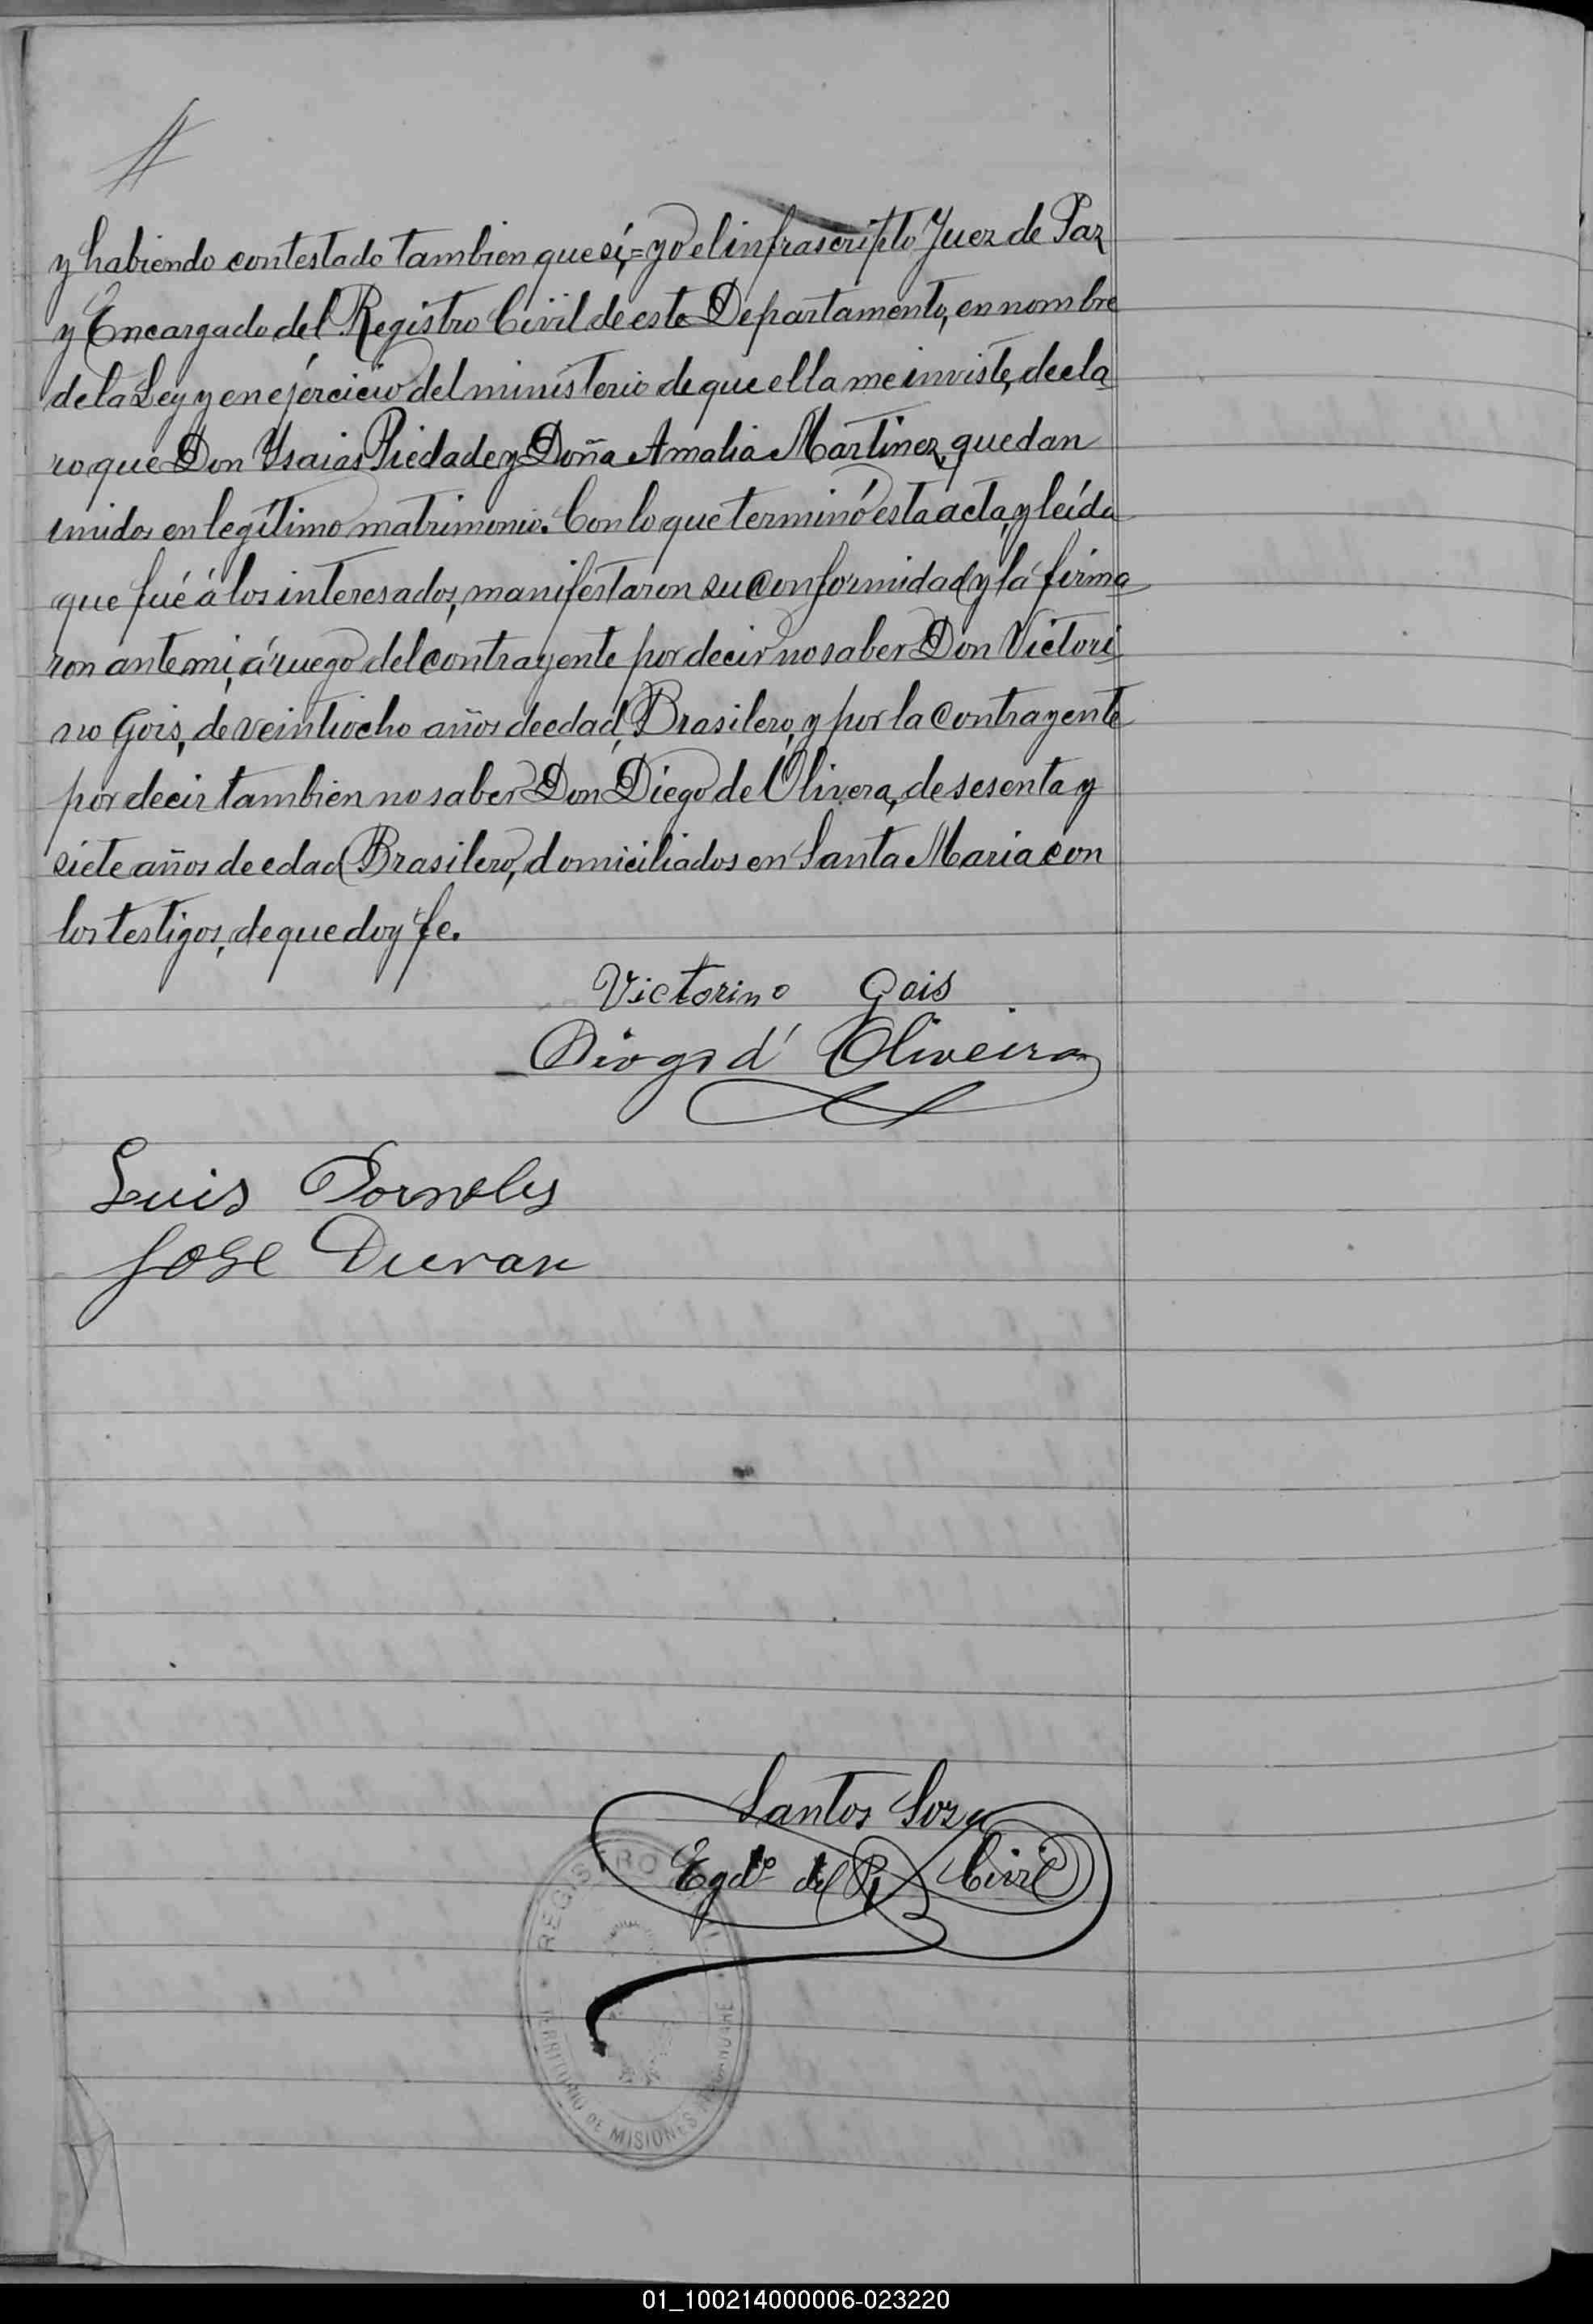 y habiendo contestado tambien que sí,=yo el infrascripto Juez de Paz
y Encargado del Registro Civil de este Departamento, en nombre
de la Ley y en ejércicio del ministerio de que ella me inviste, decla
ro que Don Ysaias Piedade y Doña Amalia Martinez, quedan
unidos en legítimo matrimonio. Con lo que terminó esta acta, y leída
que fué á los interesados, manifestaron su conformidad y la firma
ron ante mi, á ruego del contrayente por decir no saber Don Victori
no Gois, de veintiocho años de edad, Brasilero, y por la contrayente
por decir tambien no saber Don Diego de Olivera, de sesenta y
siete años de edad Brasilero, domiciliados en Santa Maria con
los testigos, de que doy fe.
Victorino Gois
Diogo d' Oliveira
Luis Dornelys
Jose Duran
Santos Soza
Egdo del R. Civil
REGISTRO
TERRITORIO DE MISIONES
01_100214000006-023220